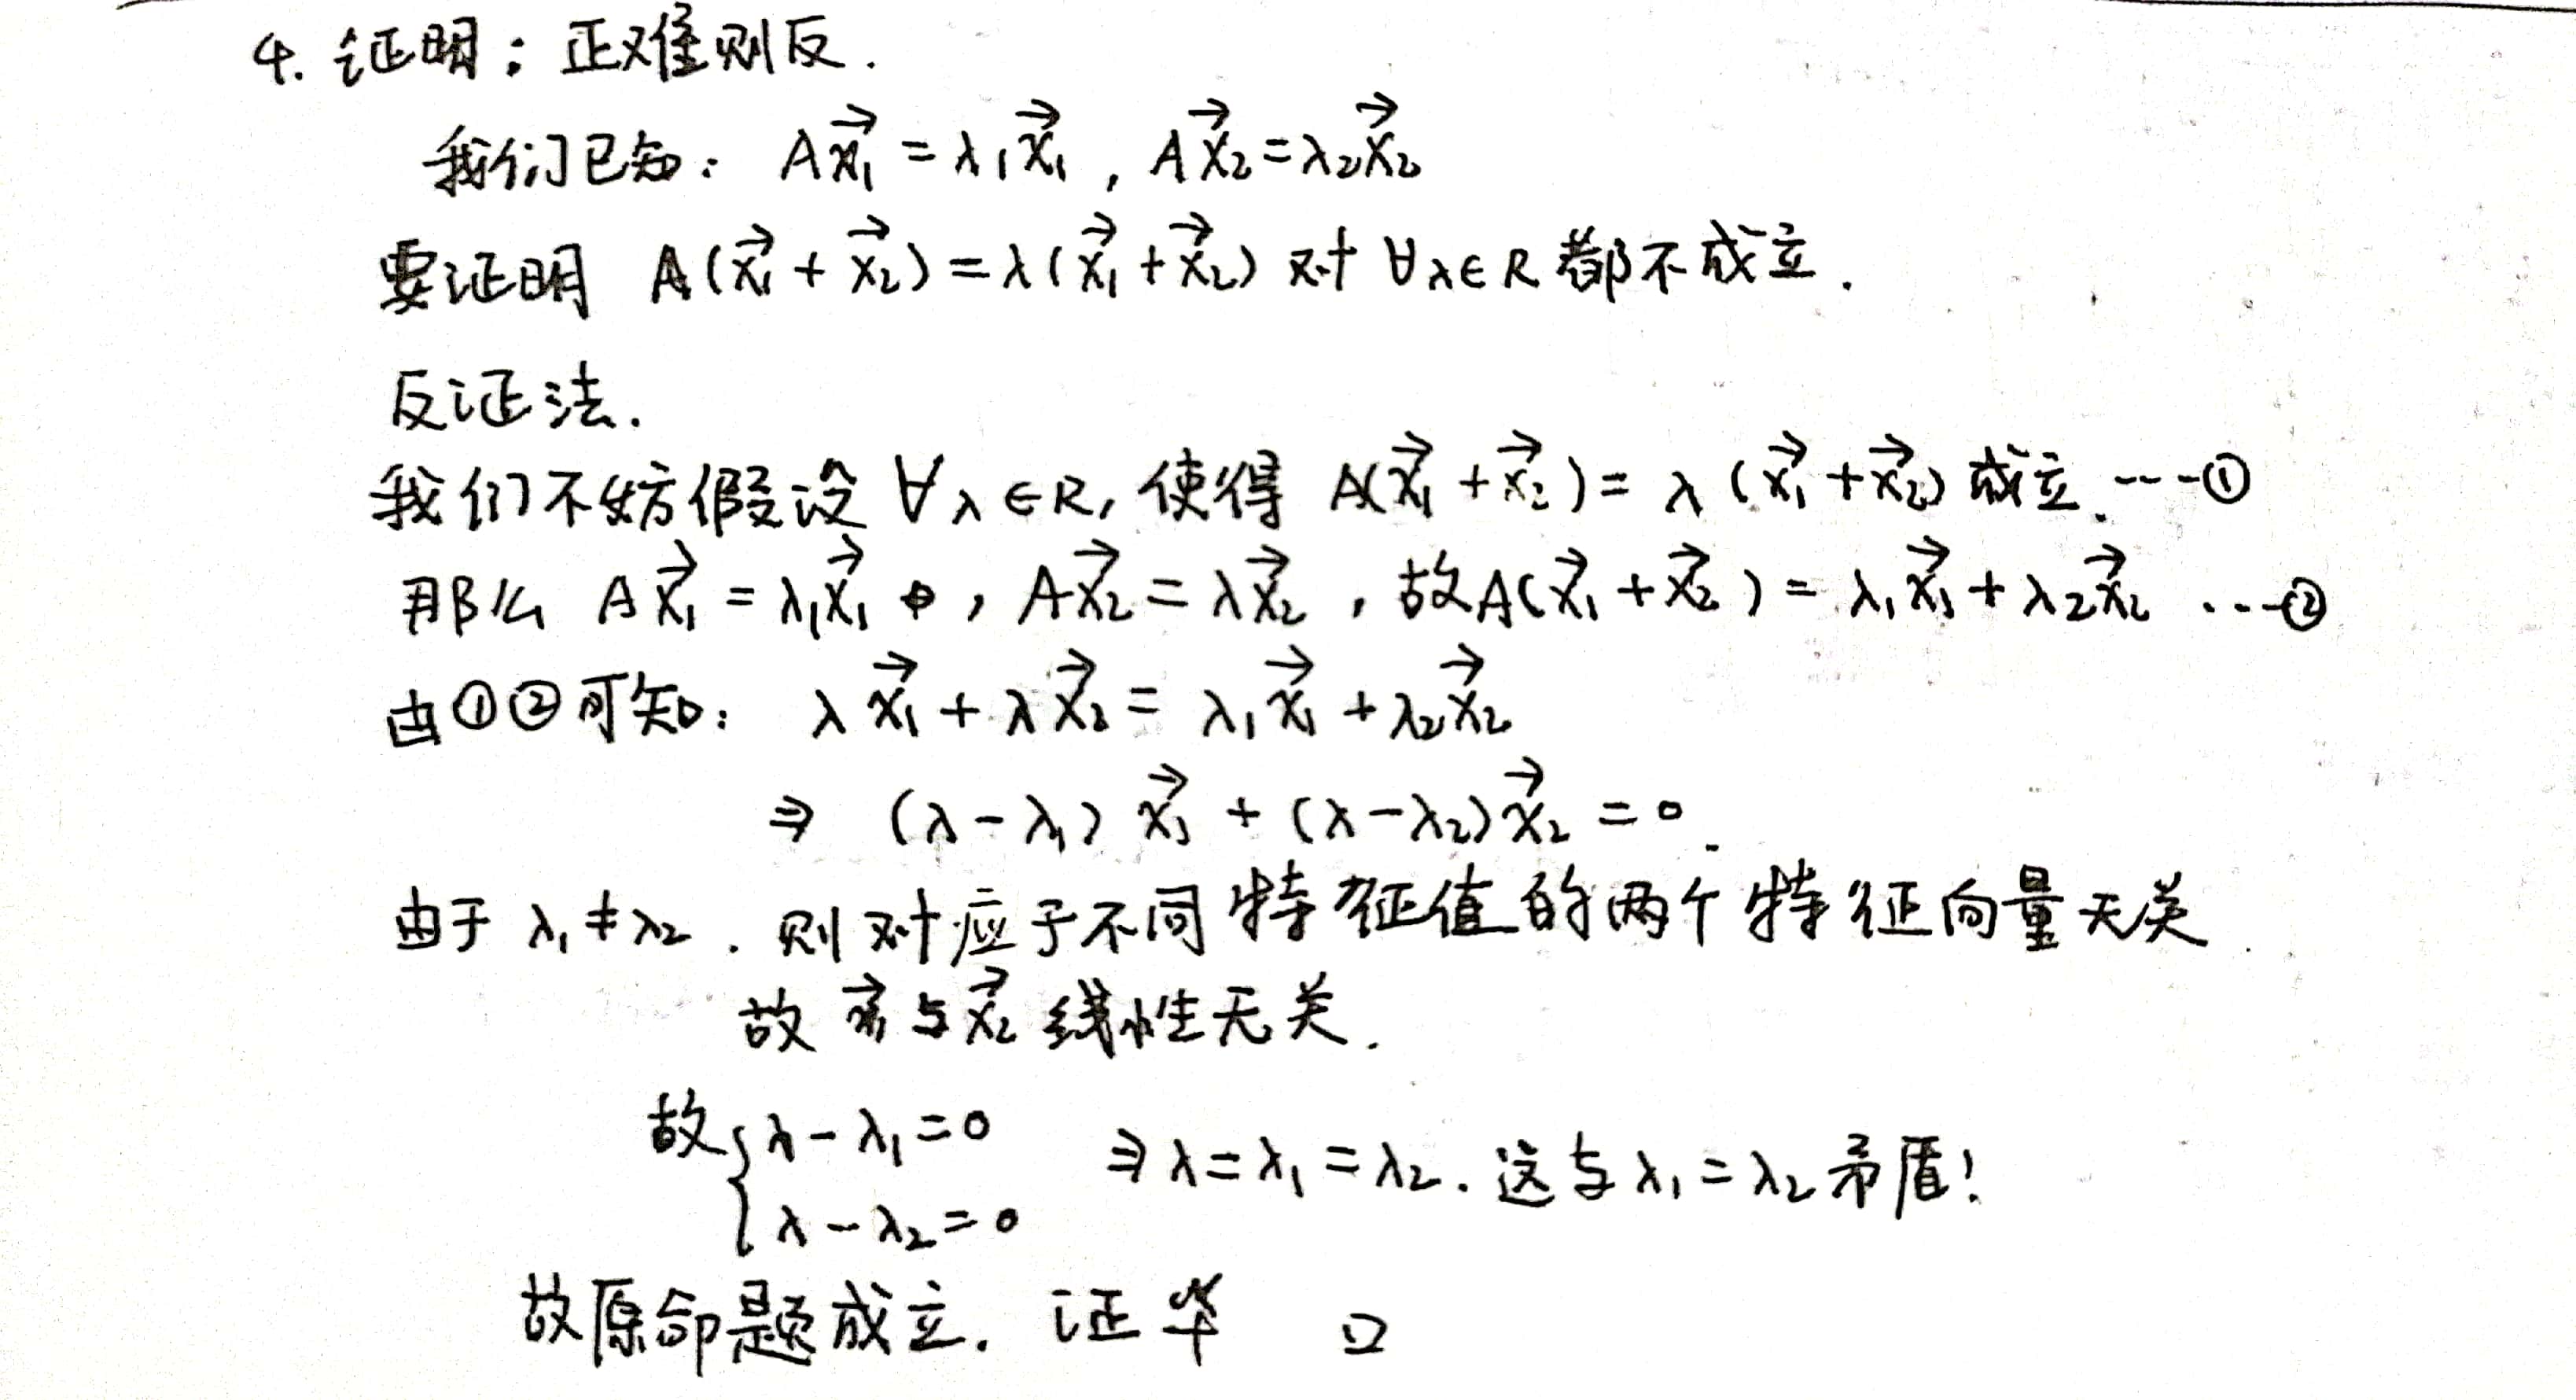 4. 证明：正难则反.
我们已知： A\vec{x_1} = λ_1\vec{x_1} , A\vec{x_2} = λ_2\vec{x_2}
要证明 A(\vec{x_1} + \vec{x_2}) = λ(\vec{x_1} + \vec{x_2}) 对 ∀λ∈R 都不成立.
反证法.
我们不妨假设 ∀λ∈R, 使得 A(\vec{x_1} + \vec{x_2}) = λ(\vec{x_1} + \vec{x_2}) 成立. ---①
那么 A\vec{x_1} = λ_1\vec{x_1} , A\vec{x_2} = λ\vec{x_2} , 故A(\vec{x_1} + \vec{x_2}) = λ_1\vec{x_1} + λ_2\vec{x_2} ...-②
由①②可知： λ\vec{x_1} + λ\vec{x_2} = λ_1\vec{x_1} + λ_2\vec{x_2}
⇒ (λ-λ_1)\vec{x_1} + (λ-λ_2)\vec{x_2} = 0.
由于 λ_1≠λ_2 . 则对应于不同特征值的两个特征向量无关
故 \vec{x_1} 与 \vec{x_2} 线性无关.
故{ λ-λ_1=0 ⇒ λ=λ_1=λ_2. 这与 λ_1=λ_2 矛盾!
λ-λ_2=0
故原命题成立. 证毕 □